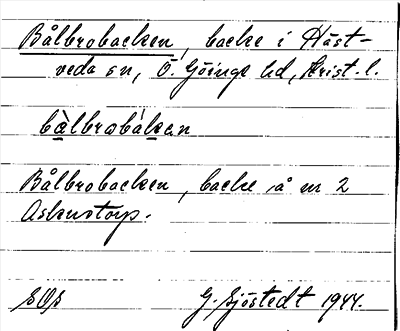 Bålbrobacken, backe i Häst-
veda sn, Ö. Göinge hd, Krist. l.
bålbrobákan
Bålbrobacken, backe å nr 2
Askestorp.
SOs
G. Sjöstedt 1944.